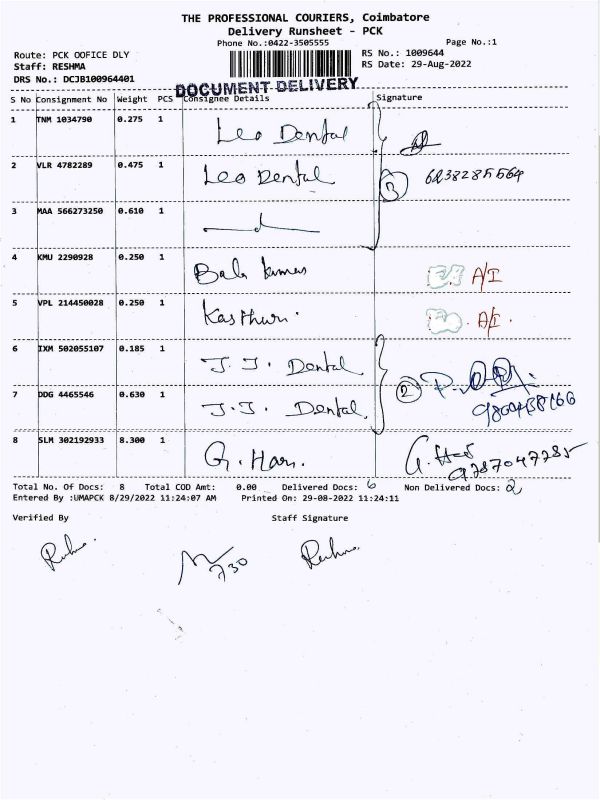 THE PROFESSIONAL COURIERS, Coimbatore
Delivery Runsheet - PCK
Phone No.:0422-3505555 Page No.:1
Route: PCK OOFICE DLY RS No.: 1009644
Staff: RESHMA RS Date: 29-Aug-2022
DRS No.: DCJB100964401
DOCUMENT DELIVERY
S No Consignment No Weight PCS Consignee Details Signature
1 TNM 1034790 0.275 1 Leo Dental
2 VLR 4782289 0.475 1 Leo Dental 3
3 MAA 566273250 0.610 1
4 KMU 2290928 0.250 1 Bala Kumar A/I
5 VPL 214450028 0.250 1 Kasthuri. A/I.
6 IXM 502055107 0.185 1 J.J. Dental
7 DDG 4465546 0.630 1 J.J. Dental. 2
8 SLM 302192933 8.300 1 G. Hari. 9787047785
Total No. Of Docs: 8 Total COD Amt: 0.00 Delivered Docs: 6 Non Delivered Docs: 2
Entered By :UMAPCK 8/29/2022 11:24:07 AM Printed On: 29-08-2022 11:24:11
Verified By Staff Signature
730